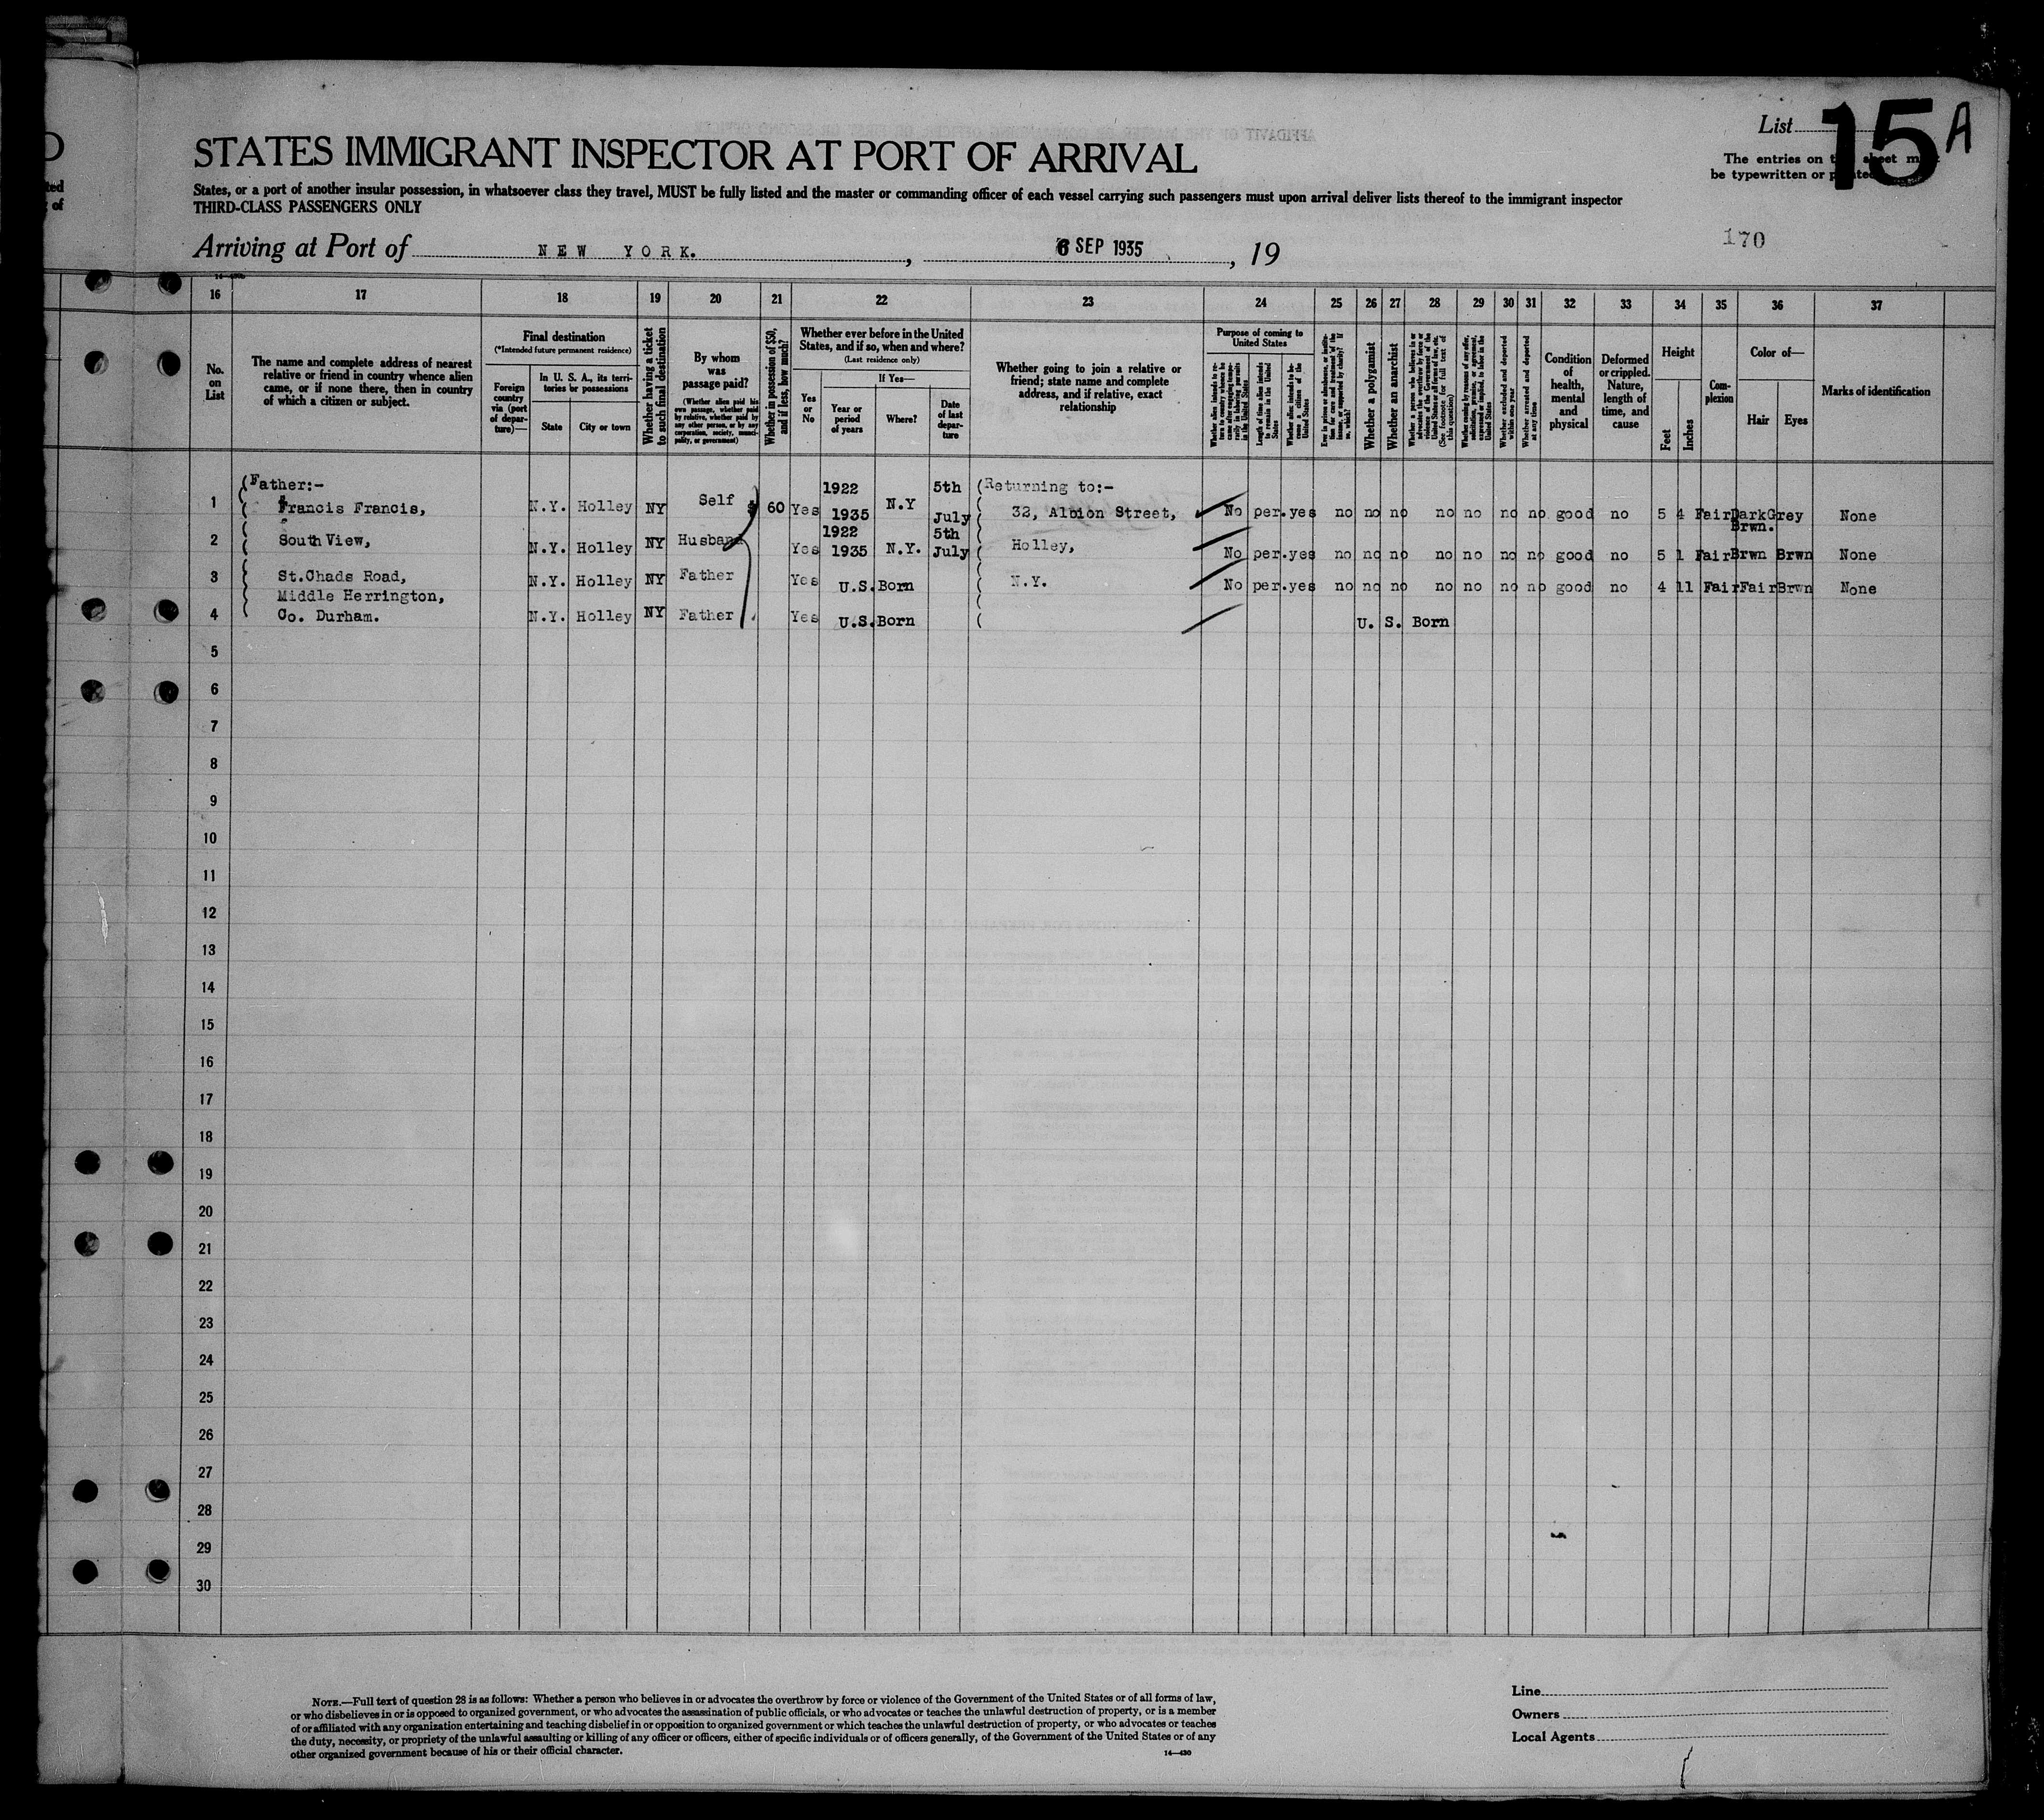 STATES IMMIGRANT INSPECTOR AT PORT OF ARRIVAL
List 15 A
The entries on sheet
be typewritten or
States, or a port of another insular possession, in whatsoever class they travel, MUST be fully listed and the master or commanding officer of each vessel carrying such passengers must upon arrival deliver lists thereof to the immigrant inspector
THIRD-CLASS PASSENGERS ONLY
Arriving at Port of NEW YORK. , 6 SEP 1935 , 19
170
16 17 18 19 20 21 22 23 24 25 26 27 28 29 30 31 32 33 34 35 36 37
No. on List
The name and complete address of nearest
relative or friend in country whence alien
came, or if none there, then in country
of which a citizen or subject.
Final destination
(*Intended future permanent residence)
Foreign country via (port of departure)—
In U. S. A., its territories or possessions
State
City or town
Whether having a ticket to such final destination
By whom was passage paid?
(Whether alien paid his own passage, whether paid by relative, whether paid by any other person, or by any corporation, society, municipality, or government)
Whether in possession of $50, and if less, how much?
Whether ever before in the United States, and if so, when and where?
(Last residence only)
Yes or No
If Yes—
Year or period of years
Where?
Date of last departure
Whether going to join a relative or
friend; state name and complete
address, and if relative, exact
relationship
Purpose of coming to United States
Whether a polygamist
Whether an anarchist
(See footnote for full text of this question)
Whether excluded and deported within one year
Whether arrested and deported at any time
Condition of health, mental and physical
Deformed or crippled. Nature, length of time, and cause
Height
Feet
Inches
Complexion
Color of—
Hair
Eyes
Marks of identification
(Father:-
1 Francis Francis, N.Y. Holley NY Self $ 60 Yes 1922 1935 N.Y 5th July (Returning to:- 32, Albion Street, No per. yes no no no no no no no good no 5 4 Fair Dark Brwn. Grey None
2 South View, N.Y. Holley NY Husband Yes 1922 1935 N.Y. 5th July Holley, No per. yes no no no no no no no good no 5 1 Fair Brwn Brwn None
3 St.Chads Road, N.Y. Holley NY Father Yes U.S. Born N.Y. No per. yes no no no no no no no good no 4 11 Fair Fair Brwn None
Middle Herrington,
4 Co. Durham. N.Y. Holley NY Father Yes U.S. Born U. S. Born
5
6
7
8
9
10
11
12
13
14
15
16
17
18
19
20
21
22
23
24
25
26
27
28
29
30
NOTE.—Full text of question 28 is as follows: Whether a person who believes in or advocates the overthrow by force or violence of the Government of the United States or of all forms of law,
or who disbelieves in or is opposed to organized government, or who advocates the assassination of public officials, or who advocates or teaches the unlawful destruction of property, or is a member
of or affiliated with any organization entertaining and teaching disbelief in or opposition to organized government or which teaches the unlawful destruction of property, or who advocates or teaches
the duty, necessity, or propriety of the unlawful assaulting or killing of any officer or officers, either of specific individuals or of officers generally, of the Government of the United States or of any
other organized government because of his or their official character.
14—430
Line
Owners
Local Agents